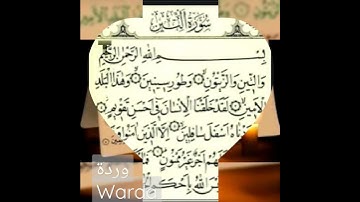 سُورَةُ التِّينِ
بِسْمِ اللَّهِ الرَّحْمَٰنِ
وَالتِّينِ وَالزَّيْتُونِ وَطُورِ سِينِينَ وَهَٰذَا الْبَلَدِ
الْأَمِينِ لَقَدْ خَلَقْنَا الْإِنسَانَ فِي أَحْسَنِ تَقْوِيمٍ
أَسْفَلَ سَافِلِينَ إِلَّا الَّذِينَ آمَنُوا
أَجْرٌ غَيْرُ مَمْنُونٍ
اللَّهُ بِأَحْكَمِ
وردة
Warda